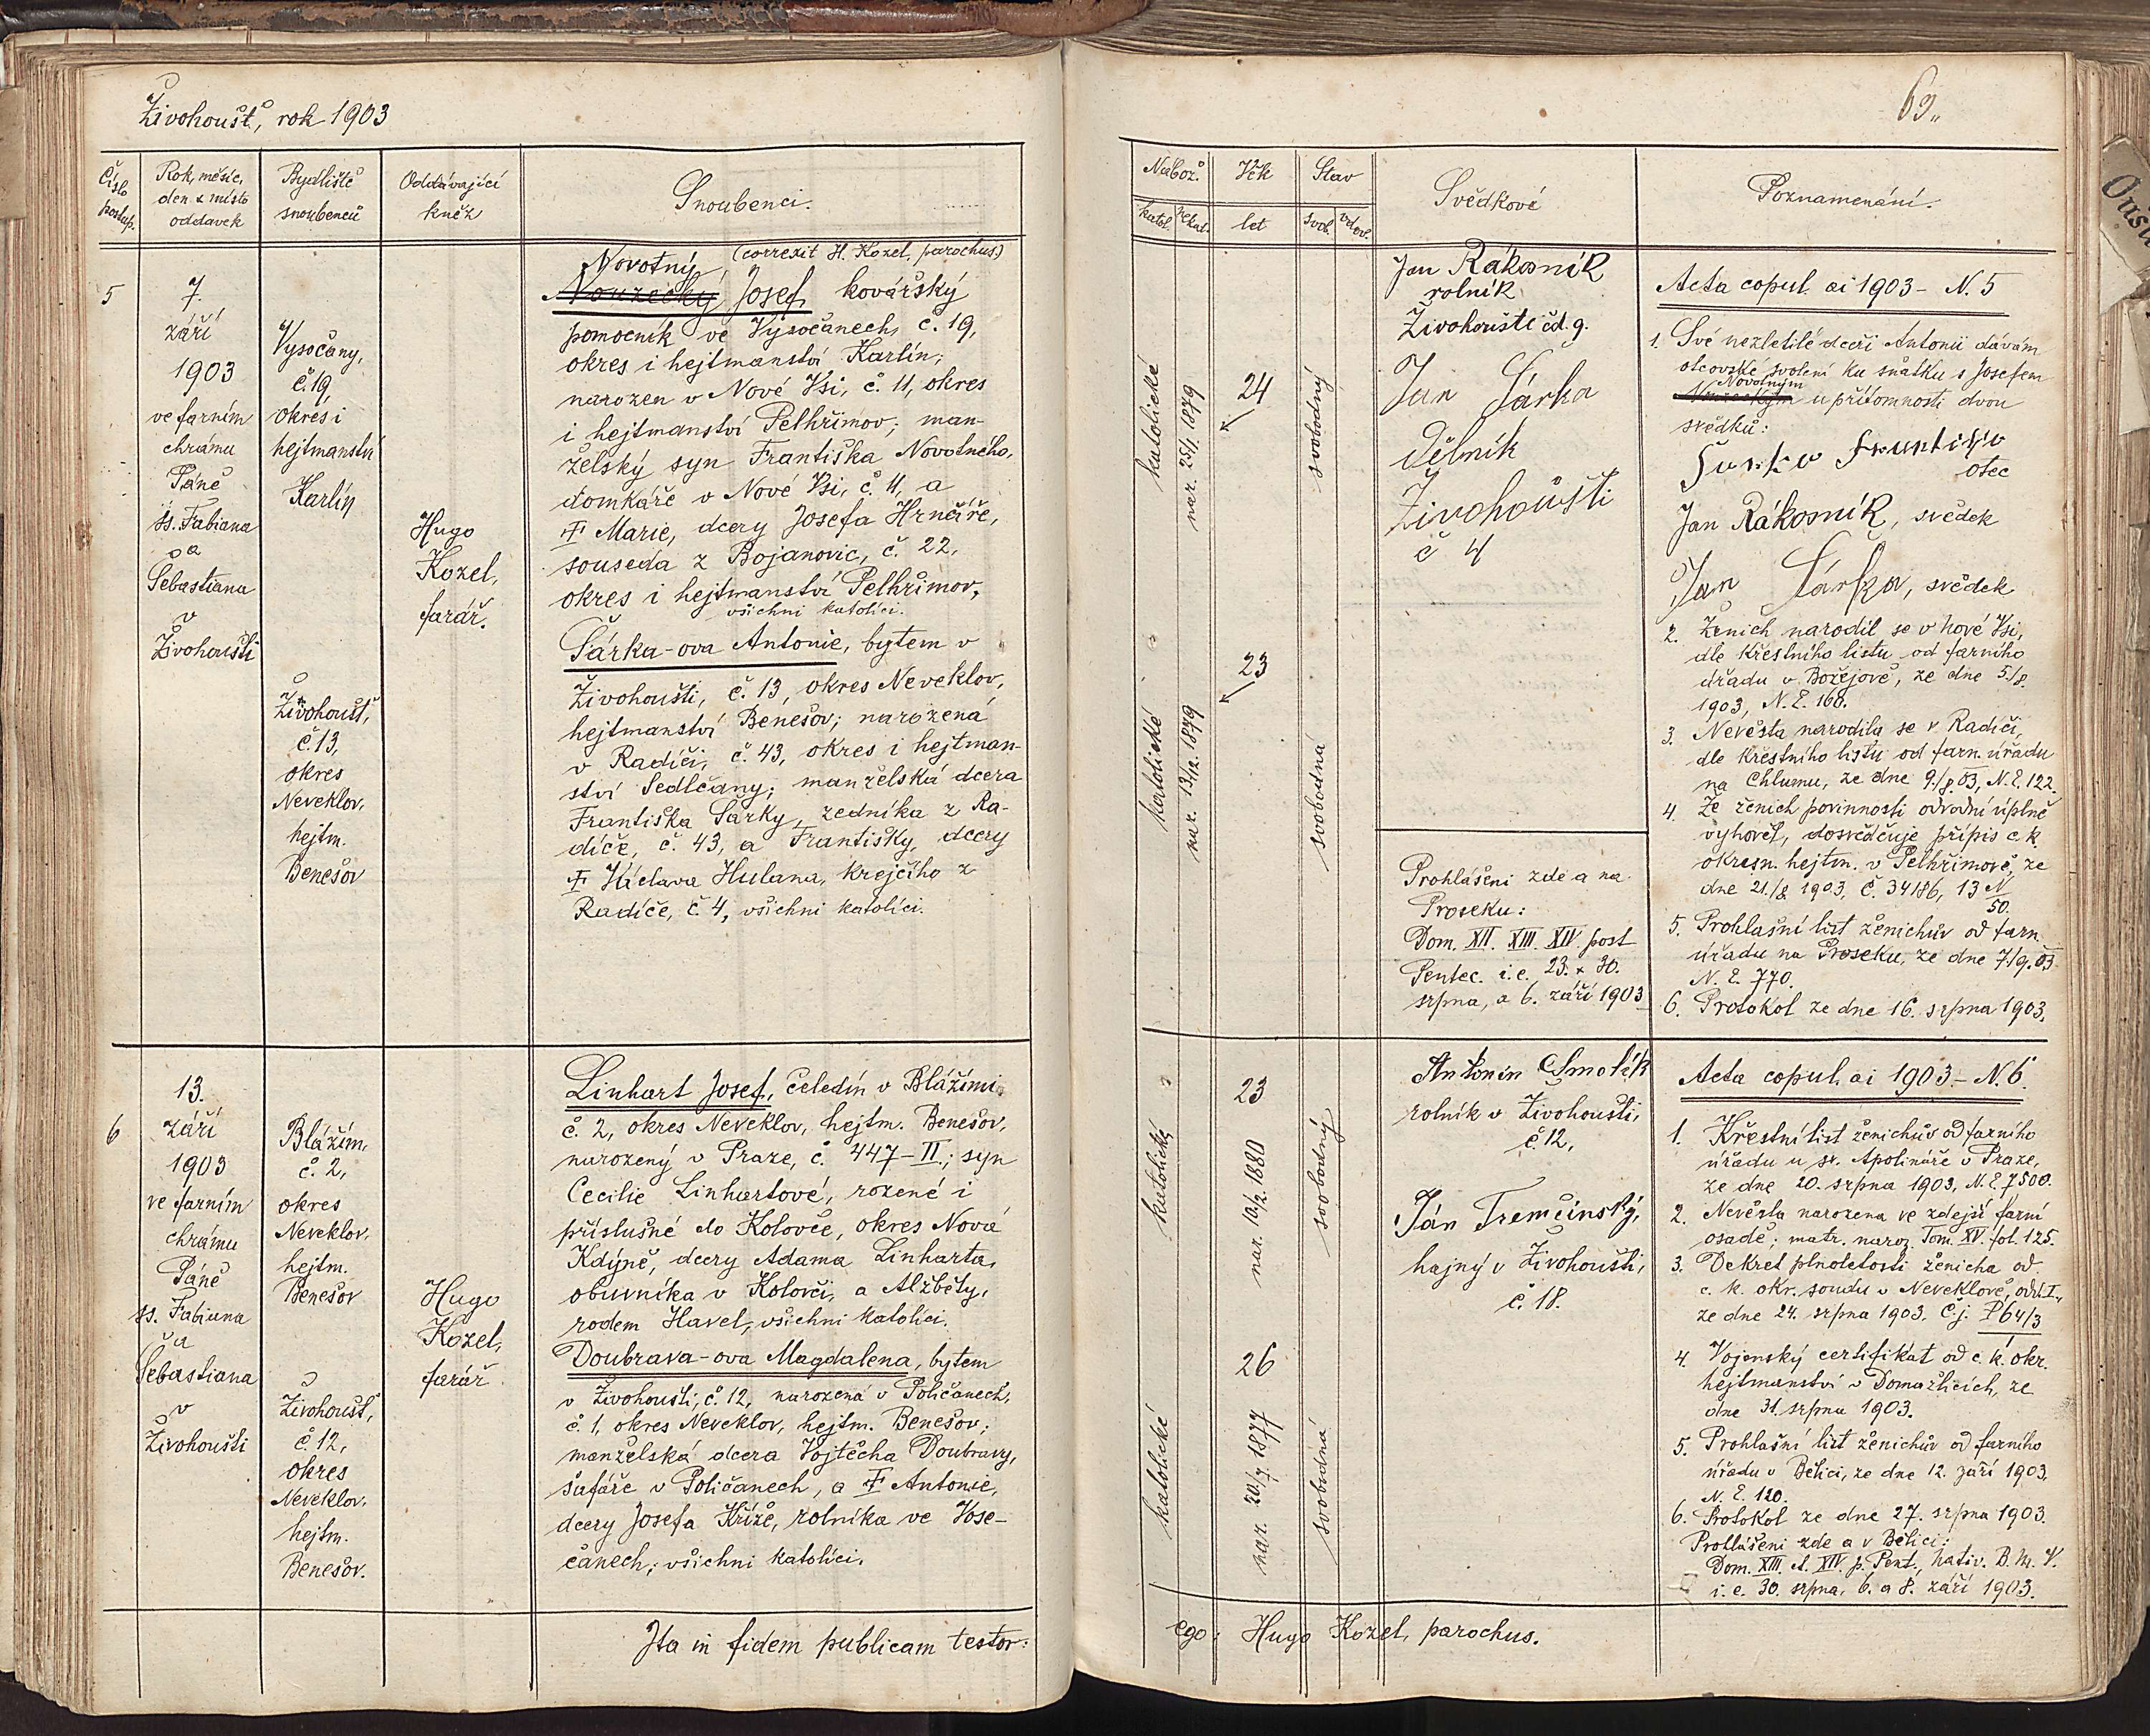 Živohoušť, rok 1903
Číslo postup.
Rok, měsíc,
den & místo
oddavek
Bydliště
snoubenců
Oddávající
kněz
Snoubenci.
5
7.
září
1903
ve farním
chrámu
Páně
ss. Fabiana
a
Šebastiana
v
Živohoušti
Vysočany,
č. 19,
okres i
hejtmanství
Karlín
Živohoušť,
č. 13,
okres
Neveklov,
hejtm.
Benešov
Hugo
Kozel,
farář.
Novotný (correxit H. Kozel, parochus)
Josef, kovářský
pomocník ve Vysočanech, č. 19,
okres i hejtmanství Karlín;
narozen v Nové Vsi, č. 11, okres
i hejtmanství Pelhřimov; man-
želský syn Františka Novotného,
domkáře v Nové Vsi, č. 11, a
† Marie, dcery Josefa Hrnčíře,
souseda z Bojanovic, č. 22,
okres i hejtmanství Pelhřimov,
všichni katolíci.
Šárka-ova Antonie, bytem v
Živohoušti, č. 13, okres Neveklov,
hejtmanství Benešov; narozená
v Radíči, č. 43, okres i hejtman-
ství Sedlčany; manželská dcera
Františka Šárky, zedníka z Ra-
díče, č. 43, a Františky, dcery
† Václava Hulana, krejčího z
Radíče, č. 4, všichni katolíci.
6
13.
září
1903
ve farním
chrámu
Páně
ss. Fabiana
a
Šebastiana
v
Živohoušti
Blážim,
č. 2,
okres
Neveklov,
hejtm.
Benešov
Živohoušť,
č. 12,
okres
Neveklov,
hejtm.
Benešov.
Hugo
Kozel,
farář
Linhart Josef, čeledín v Blážimi
č. 2, okres Neveklov, hejtm. Benešov,
narozený v Praze, č. 447-II.; syn
Cecilie Linhartové, rozené i
příslušné do Kolovče, okres Nová
Kdýně, dcery Adama Linharta,
obuvníka v Kolovči, a Alžběty,
rodem Havel, všichni katolíci.
Doubrava-ova Magdalena, bytem
v Živohoušti, č. 12, narozená v Poličanech,
č. 1, okres Neveklov, hejtm. Benešov;
manželská dcera Vojtěcha Doubravy,
šafáře v Poličanech, a † Antonie,
dcery Josefa Kříže, rolníka ve Vose-
čanech; všichni katolíci.
Ita in fidem publicam testor:
69,,
Nábož.
Věk
Stav
Svědkové
Poznamenání.
katol.
nekat.
let
svob.
vdov.
katolické
nar. 25/1. 1879
24
svobodný
katolické
nar. 13/12. 1879
23
svobodná
Jan Rákosník
rolník
Živohouště čd. 9.
Jan Šárka
dělník
Živohoušti
č 4
Prohlášení zde a na
Proseku:
Dom. XII. XIII. XIV. post
Pentec. i.e. 23. & 30.
srpna, a 6. září 1903
Acta copul. ai 1903 - N. 5
1. Své nezletilé dceři Antonii dávám
otcovské svolení ku sňatku s Josefem
Novotným
u přítomnosti dvou
svědků:
otec
Jan Rákosník, svědek
Jan Šárka, svědek
2. Ženich narodil se v Nové Vsi,
dle křestního listu od farního
úřadu v Božejově, ze dne 5./8.
1903, N. E. 160.
3. Nevěsta narodila se v Radíči,
dle křestního listu od farn. úřadu
na Chlumu, ze dne 9./8. 03, N. E. 122.
4. Že ženich povinnosti odvodní úplně
vyhověl, dosvědčuje přípis c. k.
okresn. hejtm. v Pelhřimově, ze
dne 21./8. 1903, č. 34186, 13 N/50.
5. Prohlašní list ženichův od farn.
úřadu na Proseku, ze dne 7./9. 03
N. E. 770.
6. Protokol ze dne 16. srpna 1903.
katolický
nar. 10/2. 1880
23
svobodný
katolické
nar. 20/7 1877
26
svobodná
Antonín Smolík
rolník v Živohoušti,
č. 12,
Ján Tremčinský,
hajný v Živohoušti,
č. 18.
Acta copul. ai 1903 - N. 6.
1. Křestní list ženichův od farního
úřadu u sv. Apolináře v Praze,
ze dne 20. srpna 1903, N. E. 7500.
2. Nevěsta narozena ve zdejší farní
osadě; matr. naroz. Tom. XV. fol. 125.
3. Dekret plnoletosti ženicha od
c. k. okr. soudu v Neveklově, odd. I.,
ze dne 24. srpna 1903. č. j. P 64/3
4. Vojenský certifikát od c. k. okr.
hejtmanství v Domažlicích, ze
dne 31. srpna 1903.
5. Prohlašní list ženichův od farního
úřadu v Bělici, ze dne 12. září 1903.
N. E. 120.
6. Protokol ze dne 27. srpna 1903.
Prohlášení zde a v Bělici:
Dom. XIII. et XIV. p. Pent., Nativ. B. M. V.
i. e. 30. srpna, 6. a 8. září 1903.
ego: Hugo Kozel, parochus.